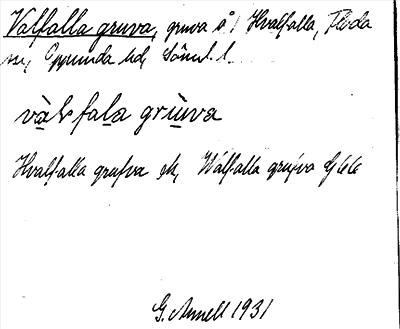 Valfalla gruva, gruva å 1 Hvalfalla, Floda
sn, Oppunda hd, Söml. l.
vàlsfala grùva
Hvalfalla grufva ek, Wálfalla grufva
G. Arnell 1931